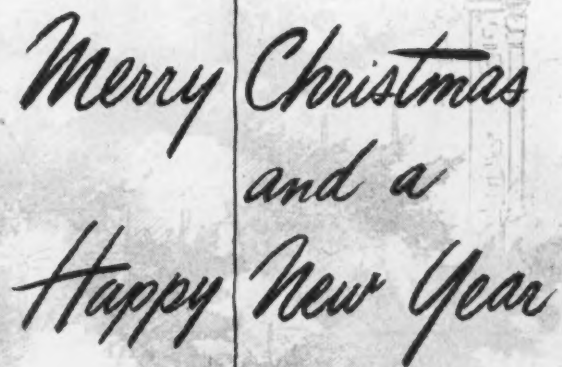 Merry Christmas
and a
Happy New Year